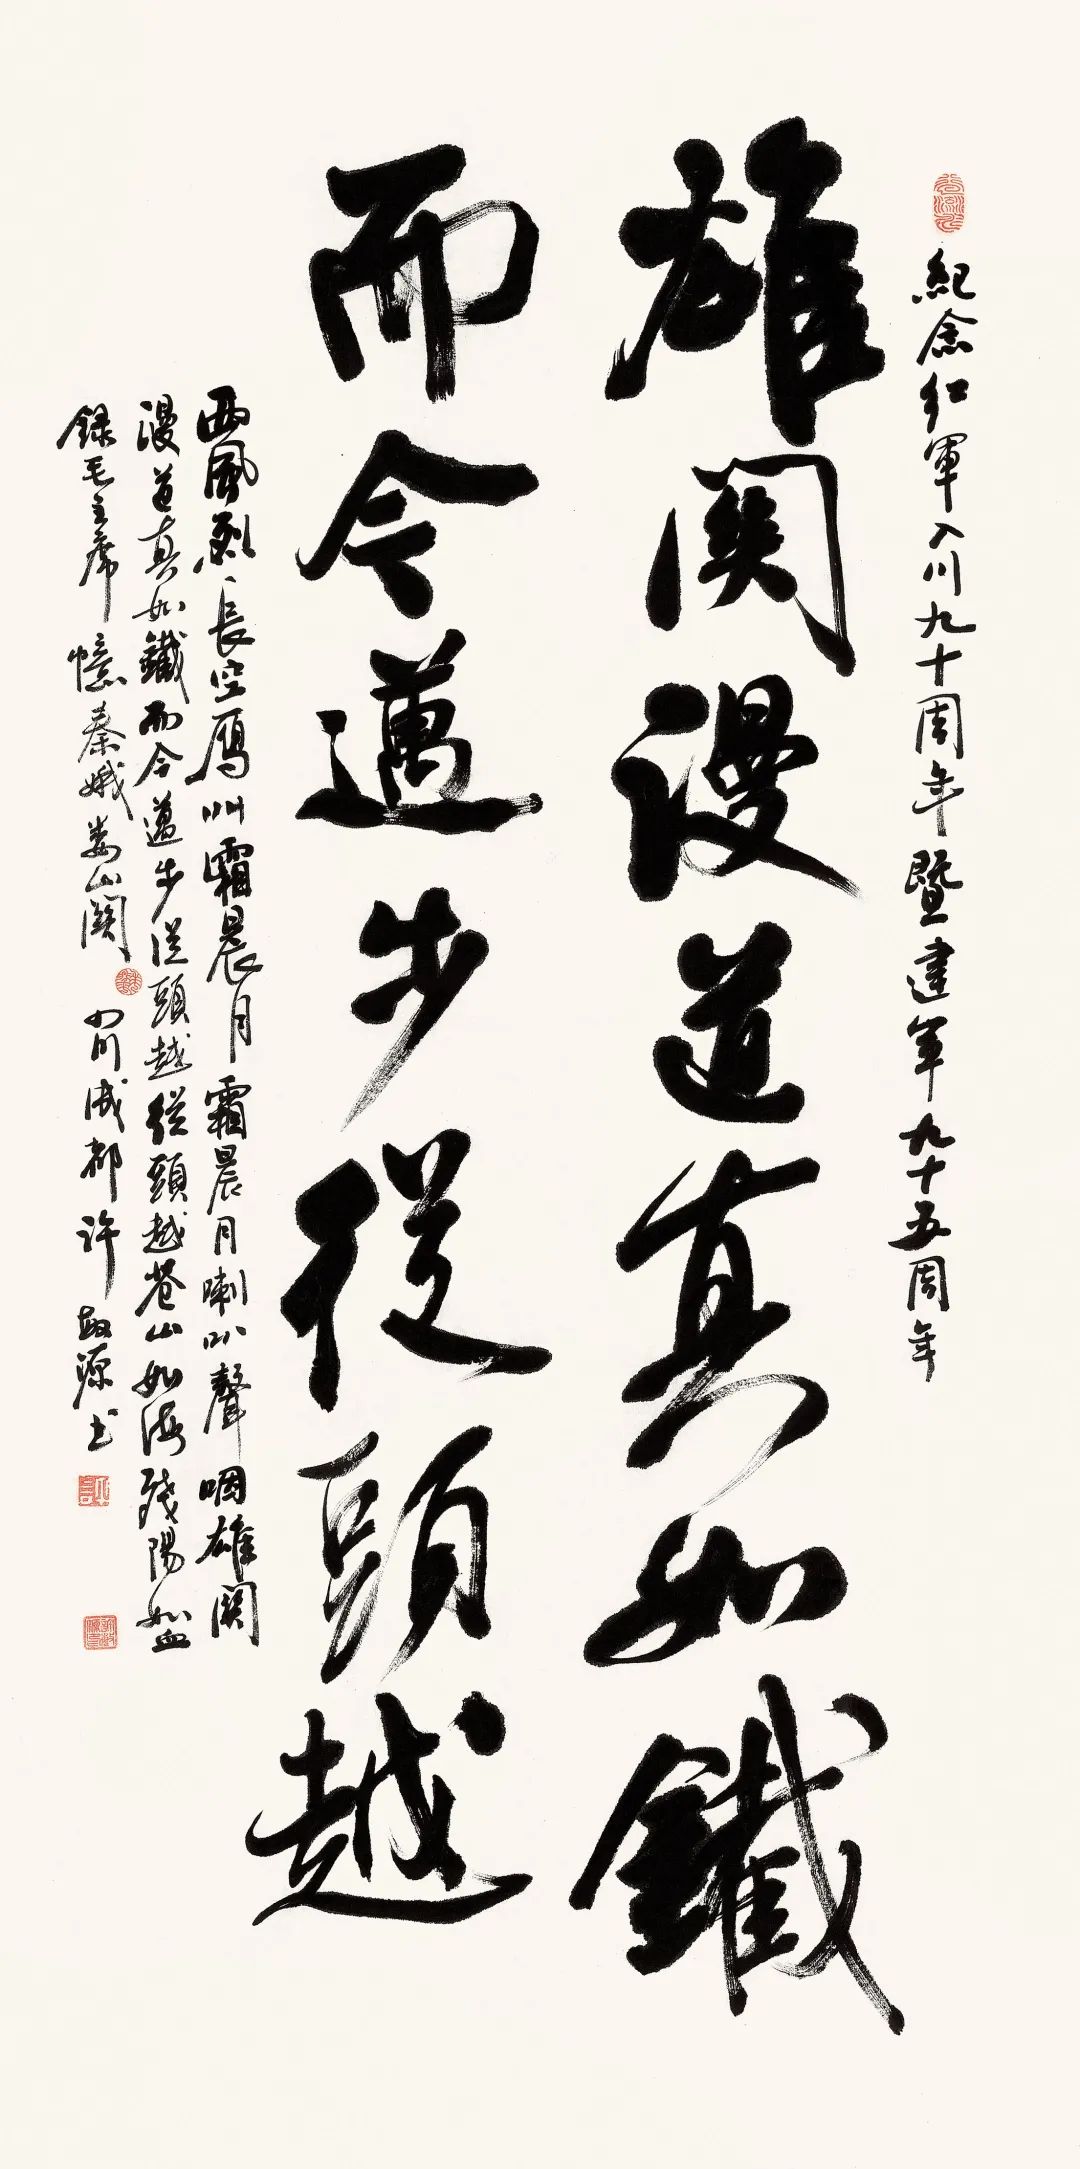 紀念红軍入川九十周年暨建军九十五周年
雄関漫道真如鐵
而今邁步従頭越
西風烈長空鴈叫霜晨月霜晨月喇叭聲咽雄関
漫道真如鐵而今邁步従頭越従頭越苍山如海残陽如血
録毛主席憶秦娥娄山関 四川成都许 源书